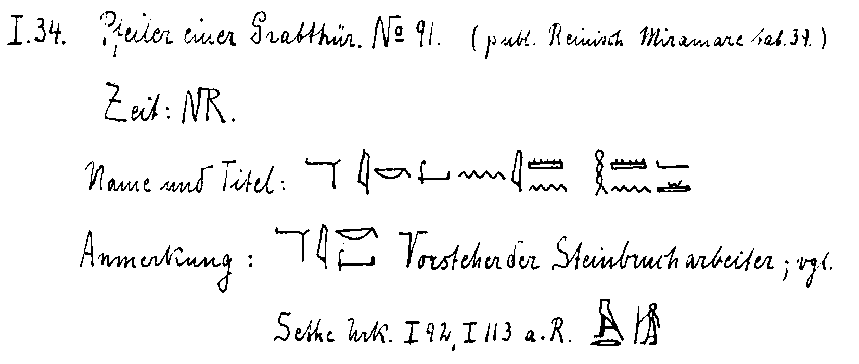 I.34. Pfeiler einer Grabthür. No 91. (publ. Reinisch Miramare tab. 39.)
Zeit: NR.
Name und Titel:
Anmerkung: Vorsteher der Steinbrucharbeiter; vgl.
Sethe Urk. I 92, I 113 a.R.